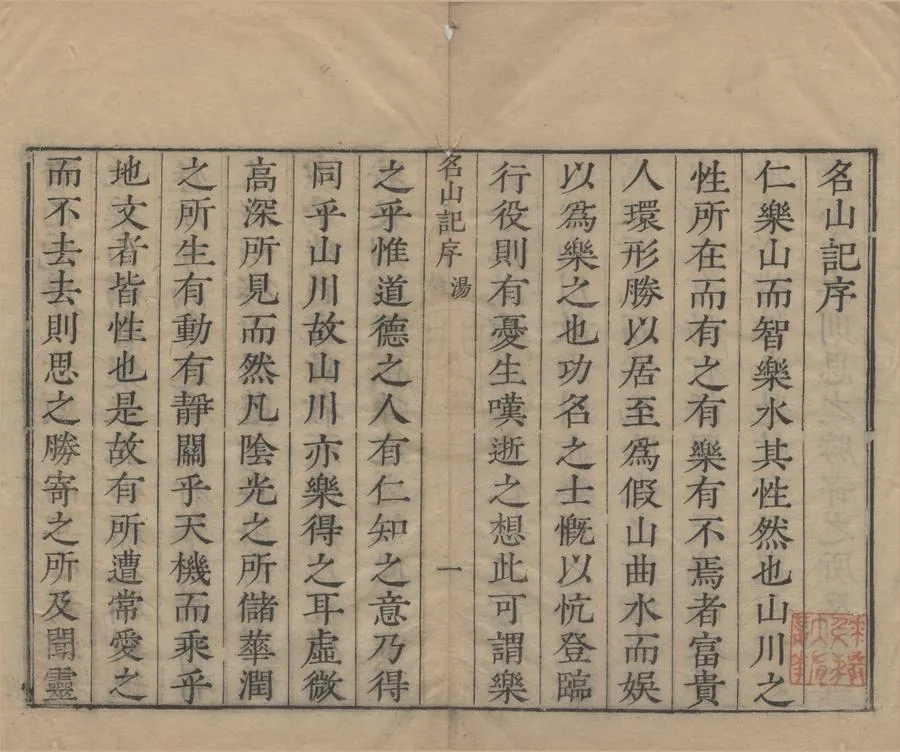 名山記序
仁樂山而智樂水其性然也山川之
性所在而有之有樂有不焉者富貴
人環形勝以居至爲假山曲水而娛
以爲樂之也功名之士慨以忼登臨
行役則有憂生嘆逝之想此可謂樂
名山記序 湯 一
之乎惟道德之人有仁知之意乃得
同乎山川故山川亦樂得之耳虛微
高深所見而然凡陰光之所儲華潤
之所生有動有靜關乎天機而乘乎
地文者皆性也是故有所遭常愛之
而不去去則思之勝寄之所及聞靈